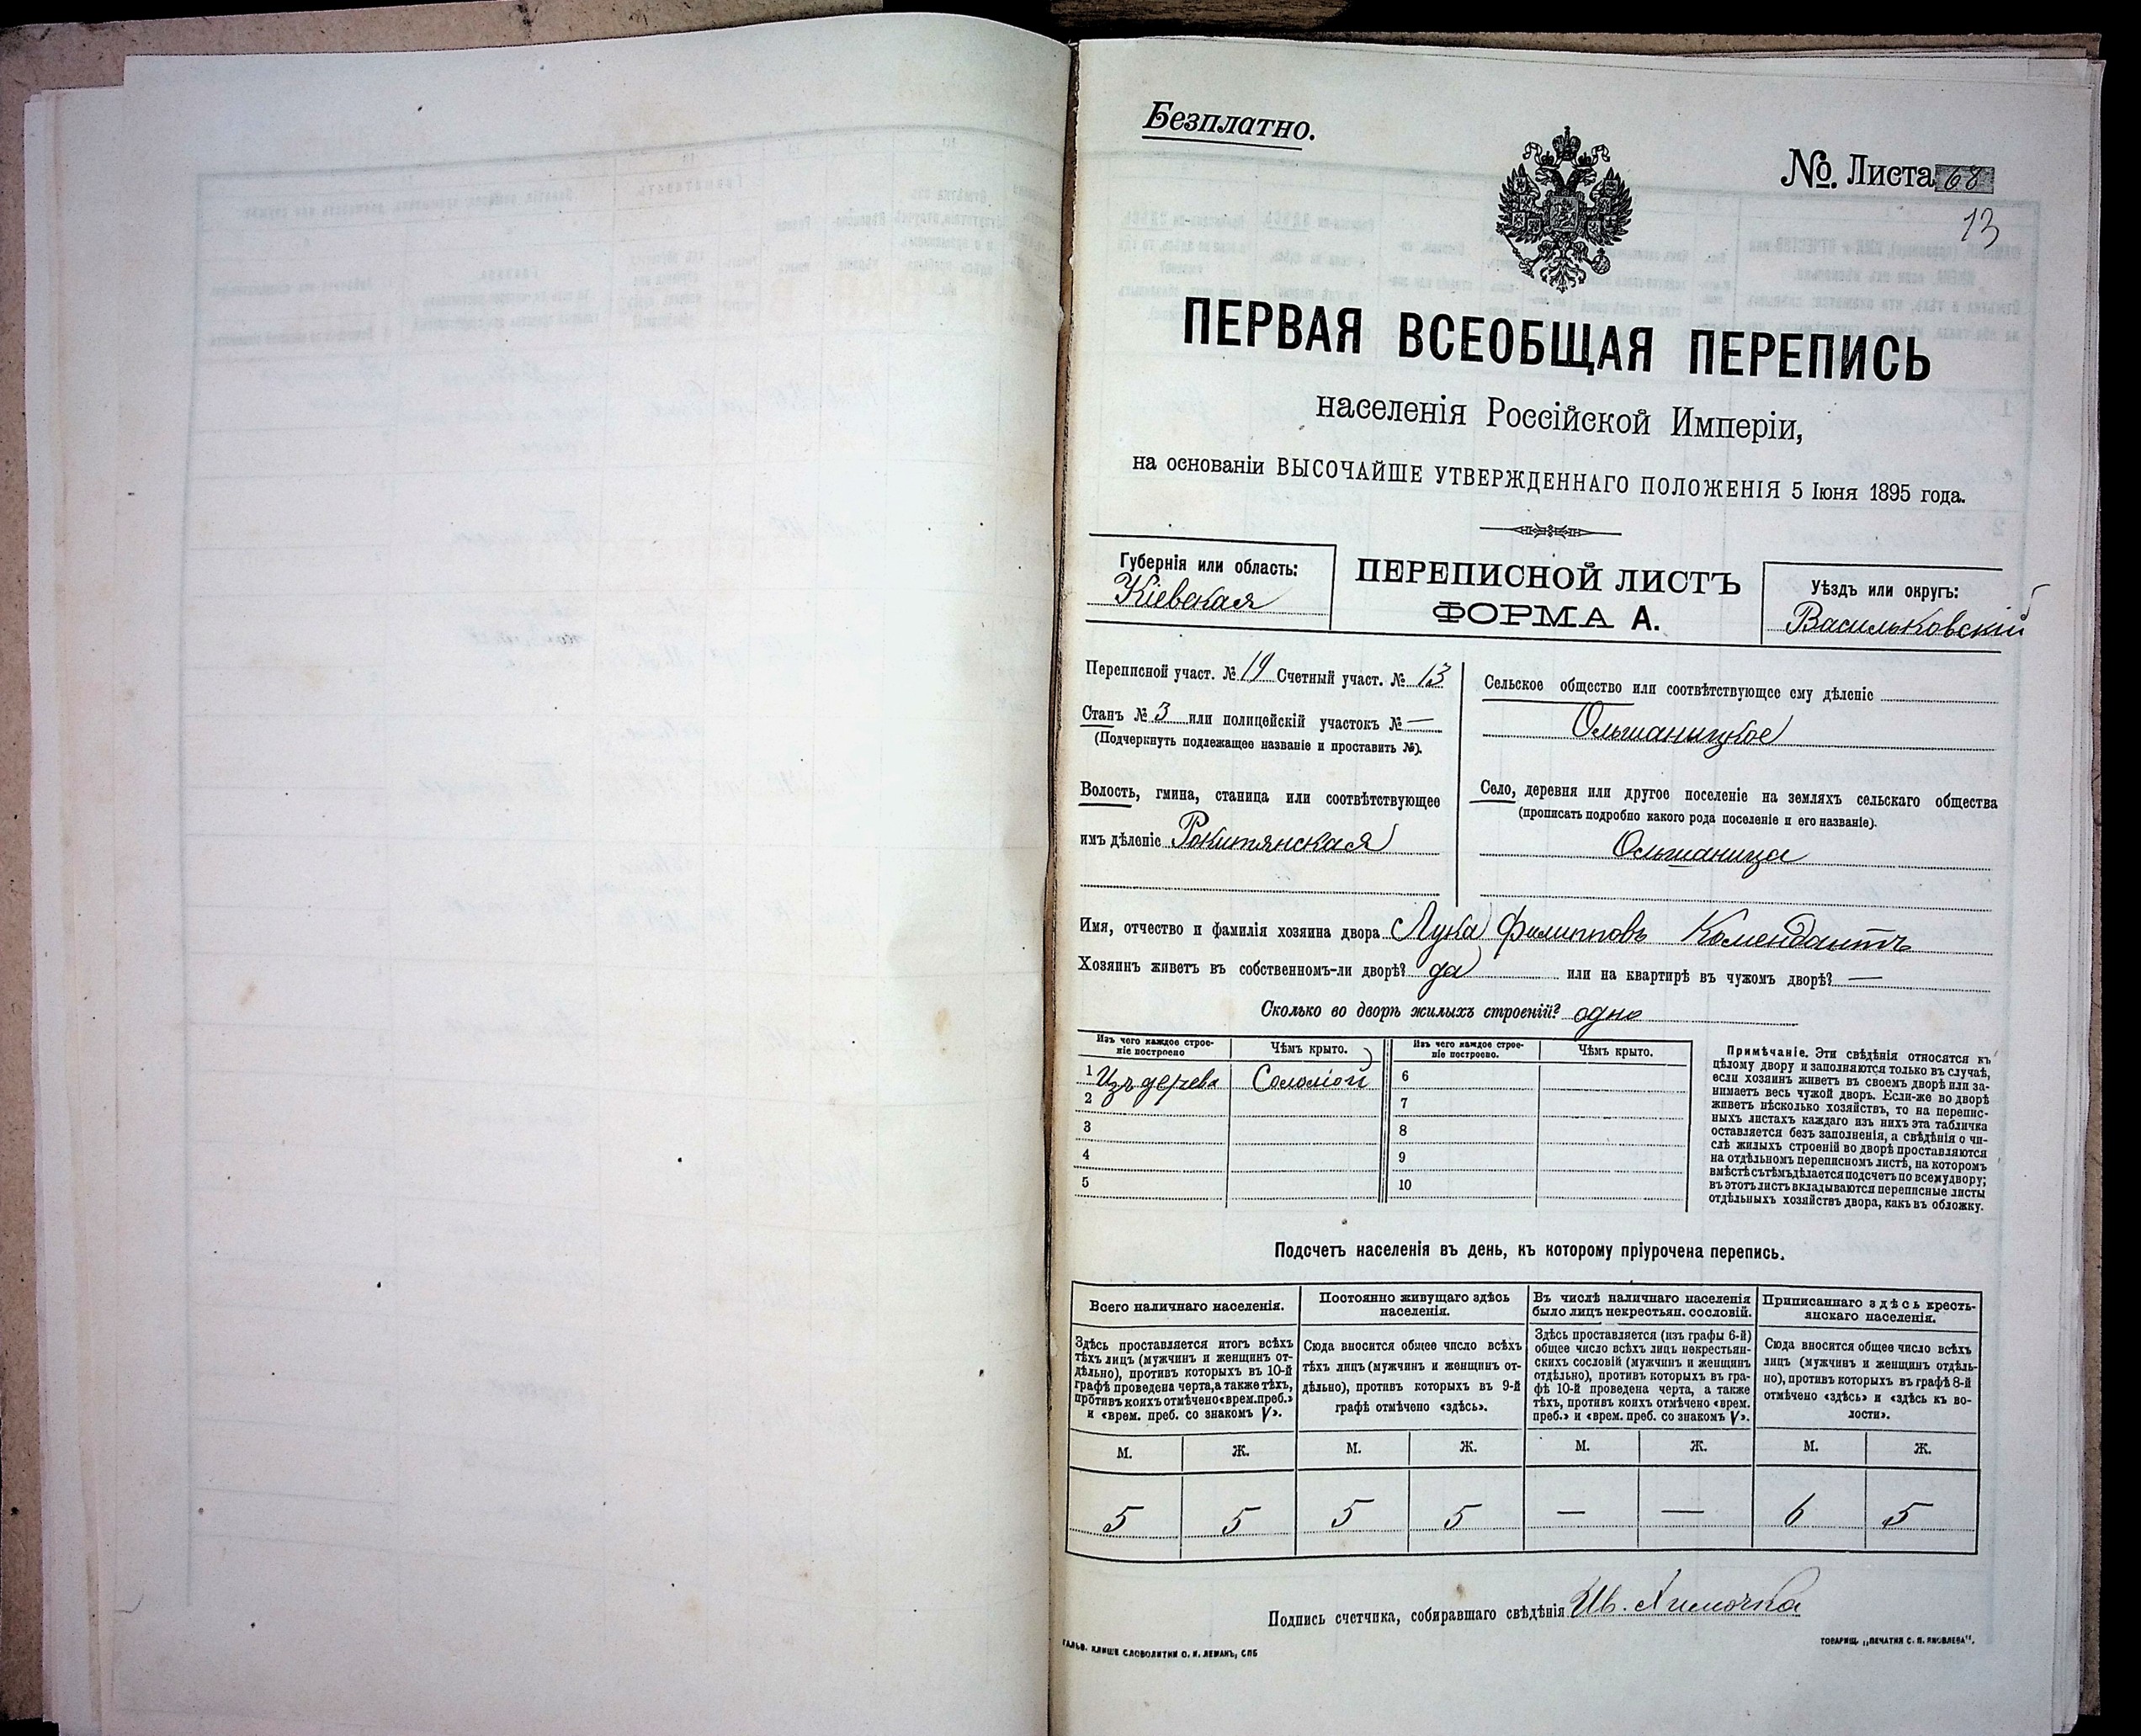 Безплатно.
№. Листа 68
13
ПЕРВАЯ ВСЕОБЩАЯ ПЕРЕПИСЬ
населенія Россійской Имперіи,
на основаніи ВЫСОЧАЙШЕ УТВЕРЖДЕННАГО ПОЛОЖЕНІЯ 5 Іюня 1895 года.
Губернія или область:
Кіевская
ПЕРЕПИСНОЙ ЛИСТЪ
ФОРМА А.
Уѣздъ или округъ:
Васильковскій
Переписной участ. № 19 Счетный участ. № 13
Станъ № 3 или полицейскій участокъ № —
(Подчеркнуть подлежащее названіе и проставить №).
Волость, гмина, станица или соотвѣтствующее
имъ дѣленіе Рокитянская
Сельское общество или соотвѣтствующее ему дѣленіе
Ольшаницкое
Село, деревня или другое поселеніе на земляхъ сельскаго общества
(прописать подробно какого рода поселеніе и его названіе).
Ольшаница
Имя, отчество и фамилія хозяина двора Лука Филипповъ Комендантъ
Хозяинъ живетъ въ собственномъ-ли дворѣ? да или на квартирѣ въ чужомъ дворѣ? —
Сколько во дворѣ жилыхъ строеній? одно
Изъ чего каждое строе-
ніе построено
Чѣмъ крыто.
Изъ чего каждое строе-
ніе построено.
Чѣмъ крыто.
1 Изъ дерева Соломой 6
2 7
3 8
4 9
5 10
Примѣчаніе. Эти свѣдѣнія относятся къ
цѣлому двору и заполняются только въ случаѣ,
если хозяинъ живетъ въ своемъ дворѣ или за-
нимаетъ весь чужой дворъ. Если-же во дворѣ
живетъ нѣсколько хозяйствъ, то на перепис-
ныхъ листахъ каждаго изъ нихъ эта табличка
оставляется безъ заполненія, а свѣдѣнія о чи-
слѣ жилыхъ строеній во дворѣ проставляются
на отдѣльномъ переписномъ листѣ, на которомъ
вмѣстѣ съ тѣмъ дѣлается подсчетъ по всему двору;
въ этотъ листъ вкладываются переписные листы
отдѣльныхъ хозяйствъ двора, какъ въ обложку.
Подсчетъ населенія въ день, къ которому пріурочена перепись.
Всего наличнаго населенія.
Здѣсь проставляется итогъ всѣхъ
тѣхъ лицъ (мужчинъ и женщинъ от-
дѣльно), противъ которыхъ въ 10-й
графѣ проведена черта, а также тѣхъ,
противъ коихъ отмѣчено «врем. преб.»
и «врем. преб. со знакомъ V».
Постоянно живущаго здѣсь
населенія.
Сюда вносится общее число всѣхъ
тѣхъ лицъ (мужчинъ и женщинъ от-
дѣльно), противъ которыхъ въ 9-й
графѣ отмѣчено «здѣсь».
Въ числѣ наличнаго населенія
было лицъ некрестьян. сословій.
Здѣсь проставляется (изъ графы 6-й)
общее число всѣхъ лицъ некрестьян-
скихъ сословій (мужчинъ и женщинъ
отдѣльно), противъ которыхъ въ гра-
фѣ 10-й проведена черта, а также
тѣхъ, противъ коихъ отмѣчено «врем.
преб.» и «врем. преб. со знакомъ V».
Приписаннаго здѣсь кресть-
янскаго населенія.
Сюда вносится общее число всѣхъ
лицъ (мужчинъ и женщинъ отдѣль-
но), противъ которыхъ въ графѣ 8-й
отмѣчено «здѣсь» и «здѣсь къ во-
лости».
М. Ж. М. Ж. М. Ж. М. Ж.
5 5 5 5 — — 6 5
Подпись счетчика, собиравшаго свѣдѣнія Ив. Химочка
ГАЛЬВ. КЛИШЕ СЛОВОЛИТНИ О. И. ЛЕМАНЪ, СПБ
ТОВАРИЩ. „ПЕЧАТНЯ С. П. ЯКОВЛЕВА".